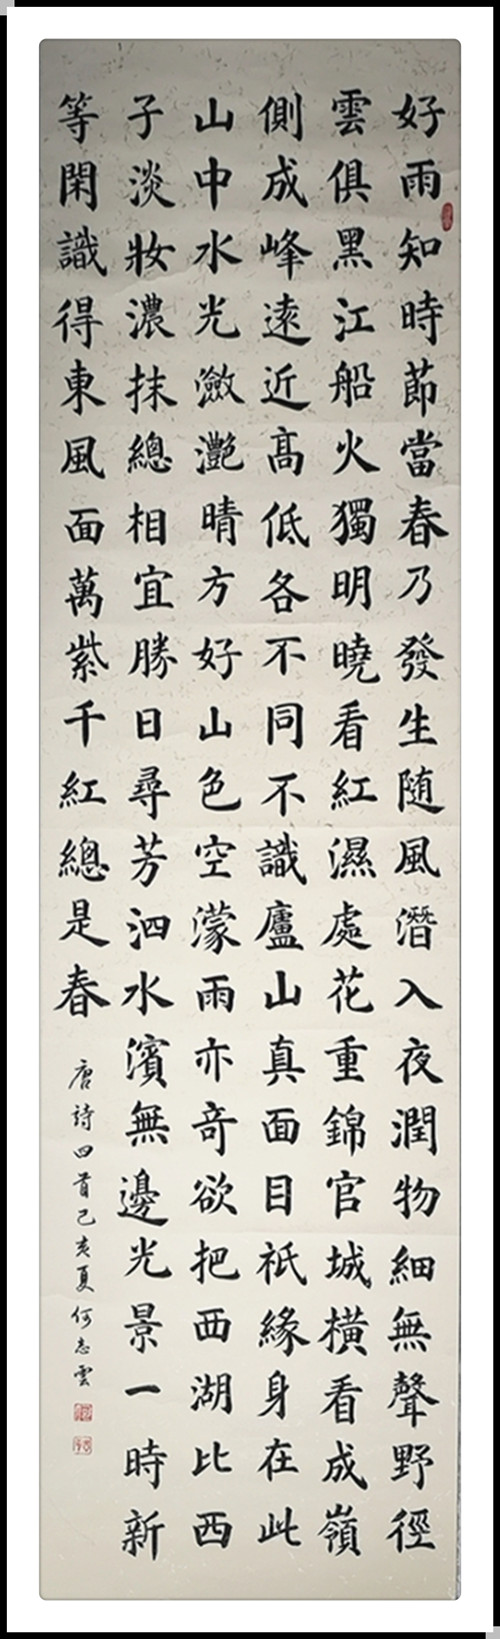 好雨知時節當春乃發生随風潛入夜潤物細無聲野徑
雲俱黑江船火獨明曉看紅濕處花重錦官城橫看成嶺
側成峰遠近髙低各不同不識廬山真面目祇緣身在此
山中水光瀲灧晴方好山色空濛雨亦奇欲把西湖比西
子淡妝濃抹總相宜勝日尋芳泗水濱無邊光景一時新
等閑識得東風面萬紫千紅總是春
唐詩四首己亥夏何志雲